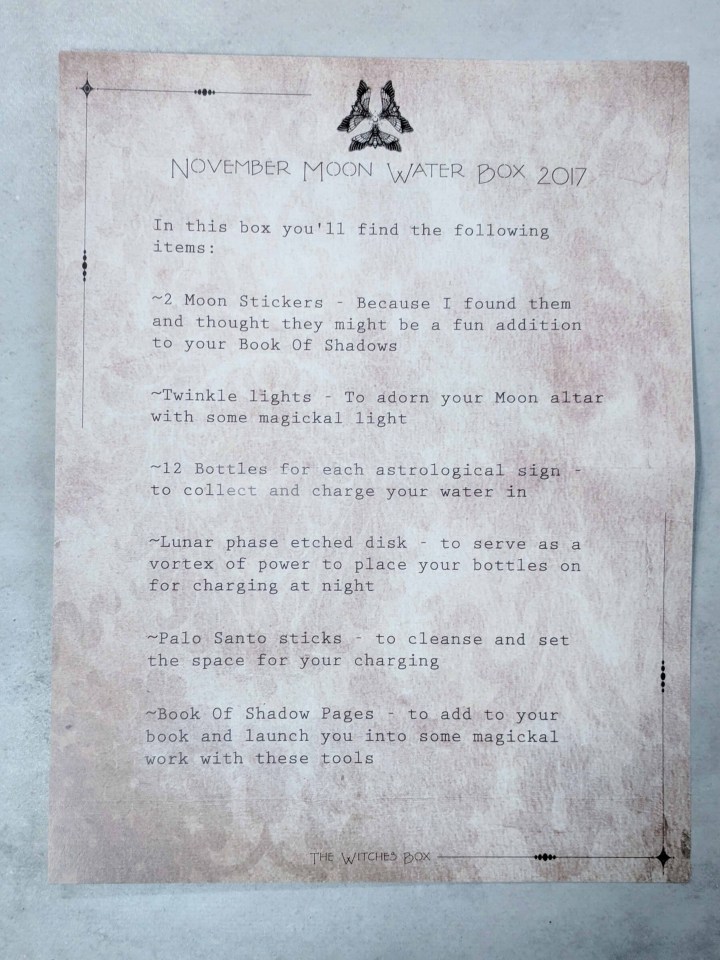 November Moon Water Box 2017
In this box you'll find the following
items:
~2 Moon Stickers - Because I found them
and thought they might be a fun addition
to your Book Of Shadows
~Twinkle lights - To adorn your Moon altar
with some magickal light
~12 Bottles for each astrological sign -
to collect and charge your water in
~Lunar phase etched disk - to serve as a
vortex of power to place your bottles on
for charging at night
~Palo Santo sticks - to cleanse and set
the space for your charging
~Book Of Shadow Pages - to add to your
book and launch you into some magickal
work with these tools
The Witches Box